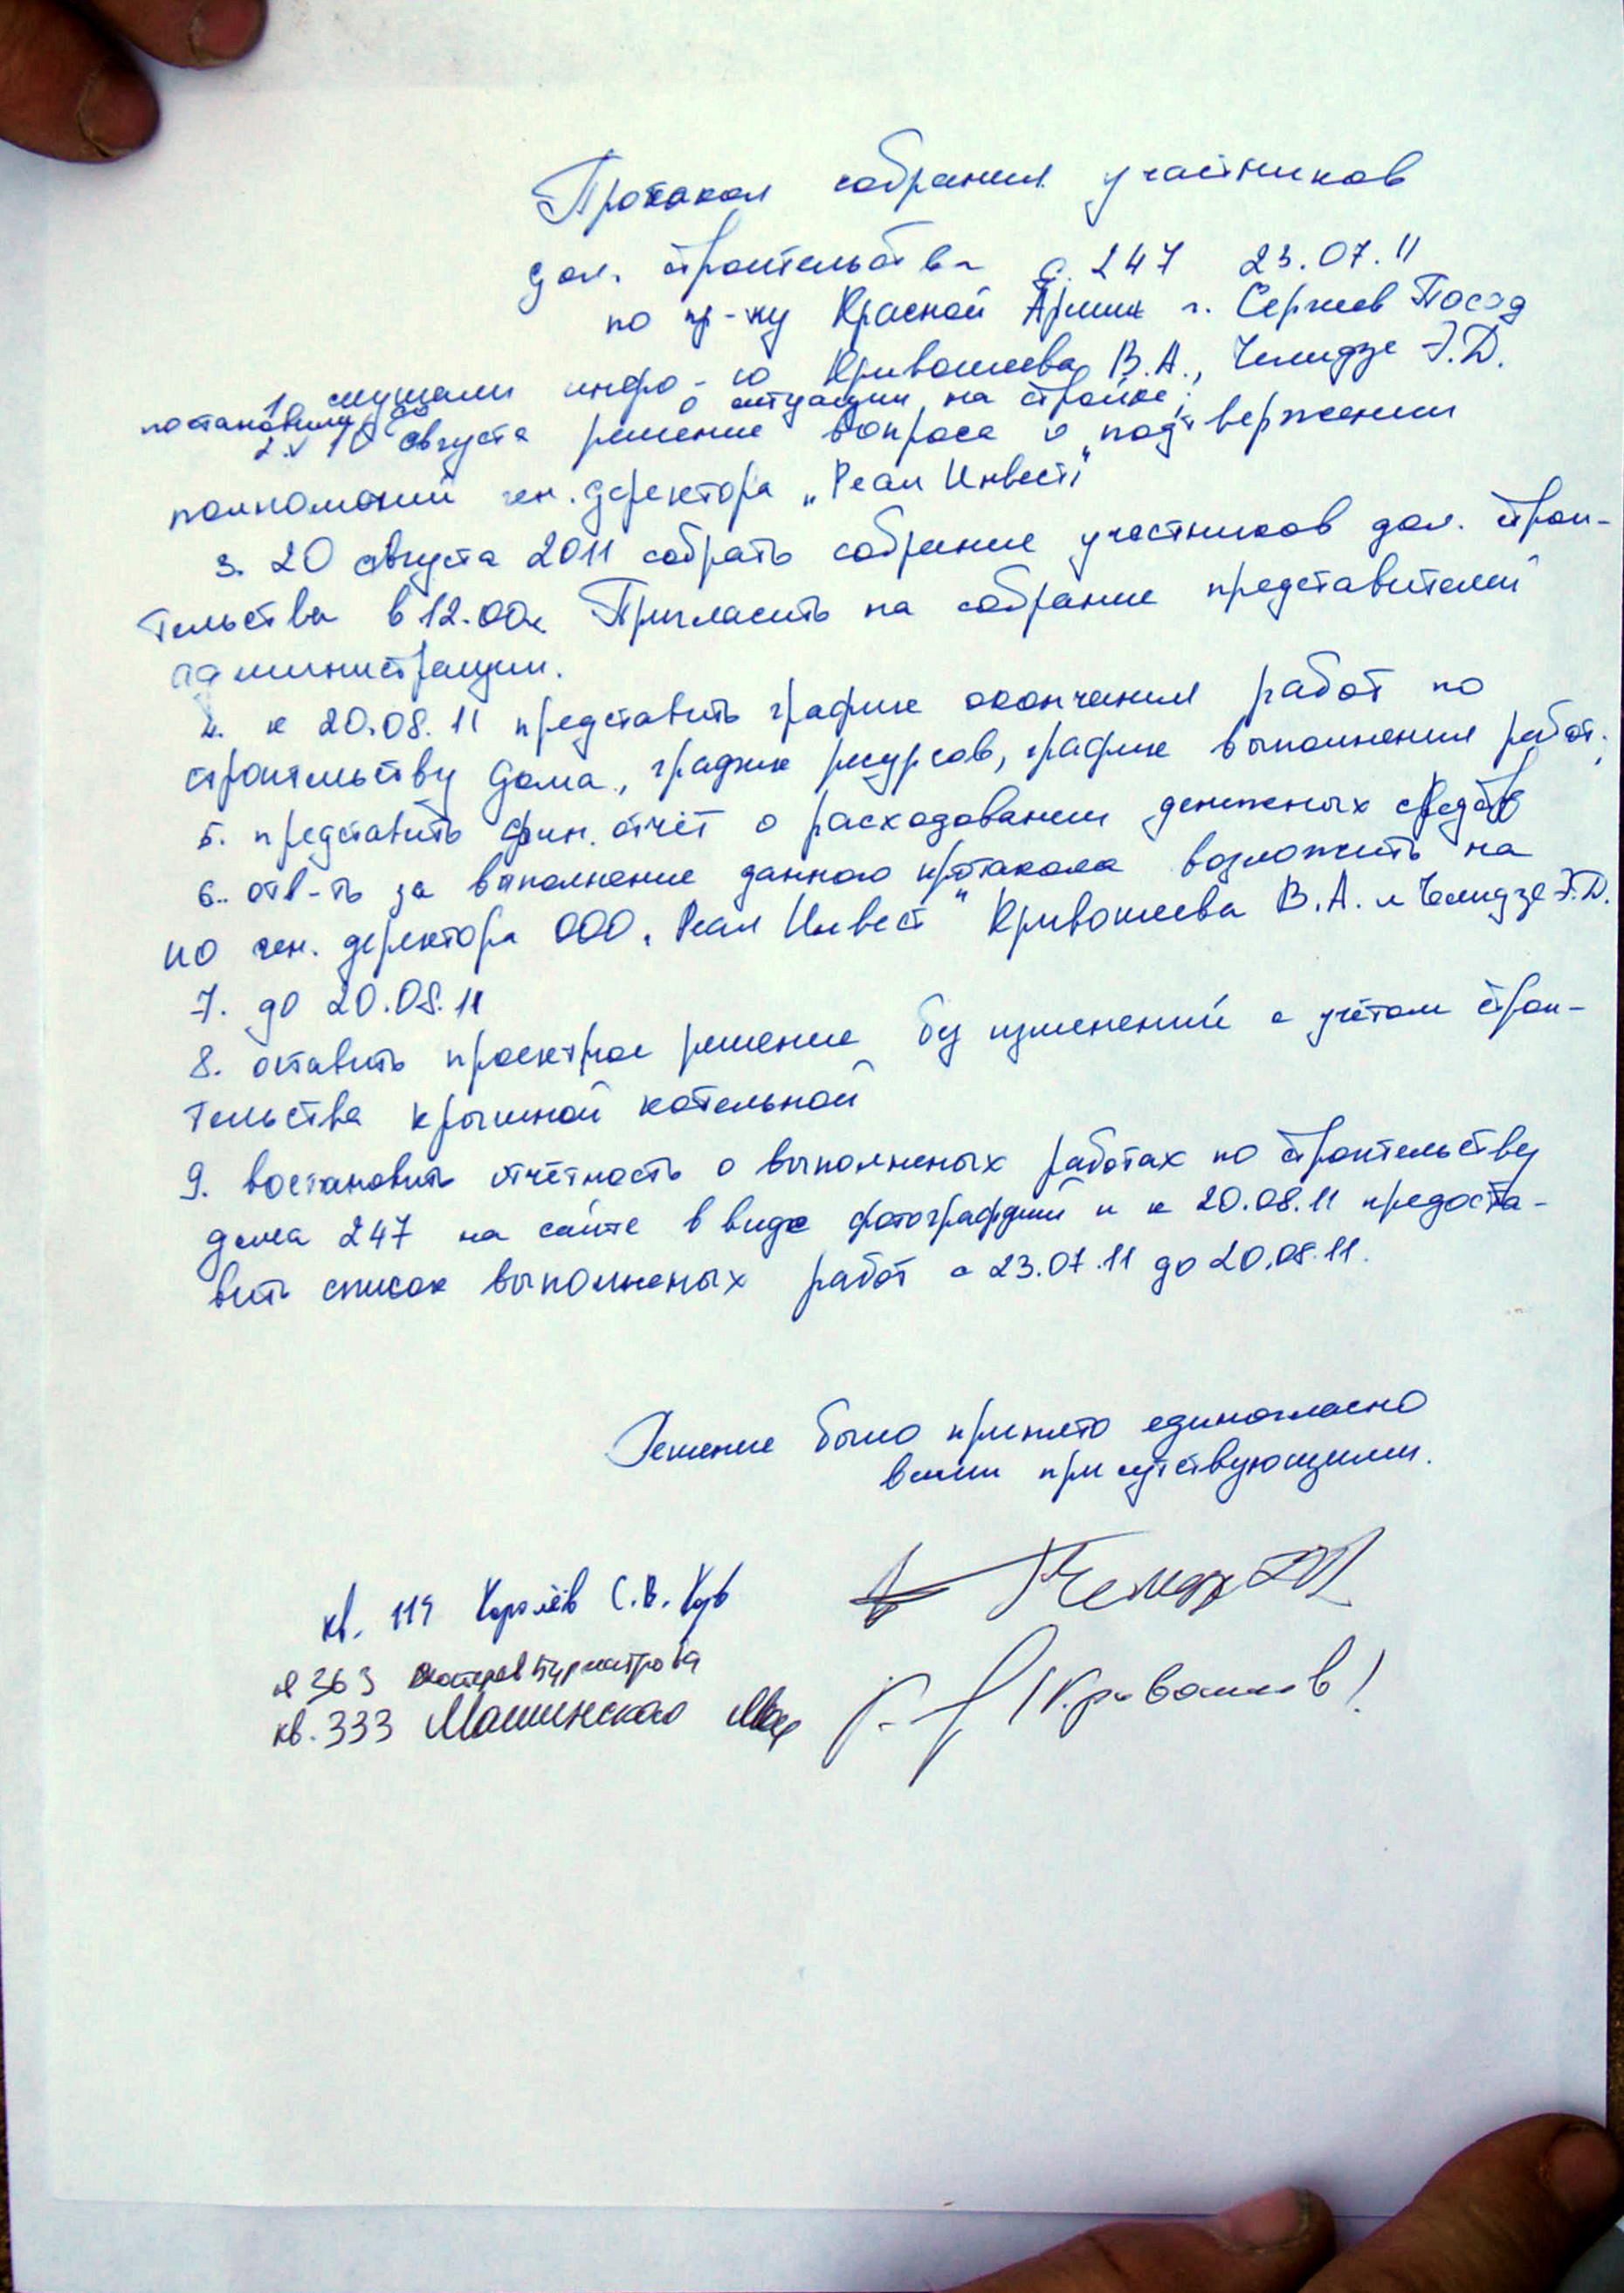 Протакол собрания участников
дол. строительства д. 247 23.07.11
по пр-ку Красной Армии г. Сергиев Посад
1. слушали инфо-ю Кривошеева В.А., Челидзе Э.Д.
о ситуации на стройке;
постановили до
2. 10 августа решение вопроса о подтвержении
полномочий ген. деректора „Реал Инвест"
3. 20 августа 2011 собрать собрание участников дол. строи-
тельства в 12.00. Пригласить на собрание представителей
администрации.
4. к 20.08.11 представить график окончания работ по
строительству дома, график ресурсов, график выполнения работ;
5. представить фин. отчёт о расходовании денежных средств
6. отв-ть за выполнение данного протакола возложить на
ИО ген. деректора ООО „Реал Инвест" Кривошеева В.А. и Челидзе Э.Д.
7. до 20.08.11
8. оставить проектное решение без изменений с учётом строи-
тельства крышной котельной
9. востановить отчётность о выполненых работах по строительству
дома 247 на сайте в виде фотографий и к 20.08.11 предоста-
вить список выполненых работ с 23.07.11 до 20.08.11.
Решение было принято единогласно
всеми присутствующими.
кв. 119 Королёв С.В.
363
кв. 333 Машинская
/Кривошеев/